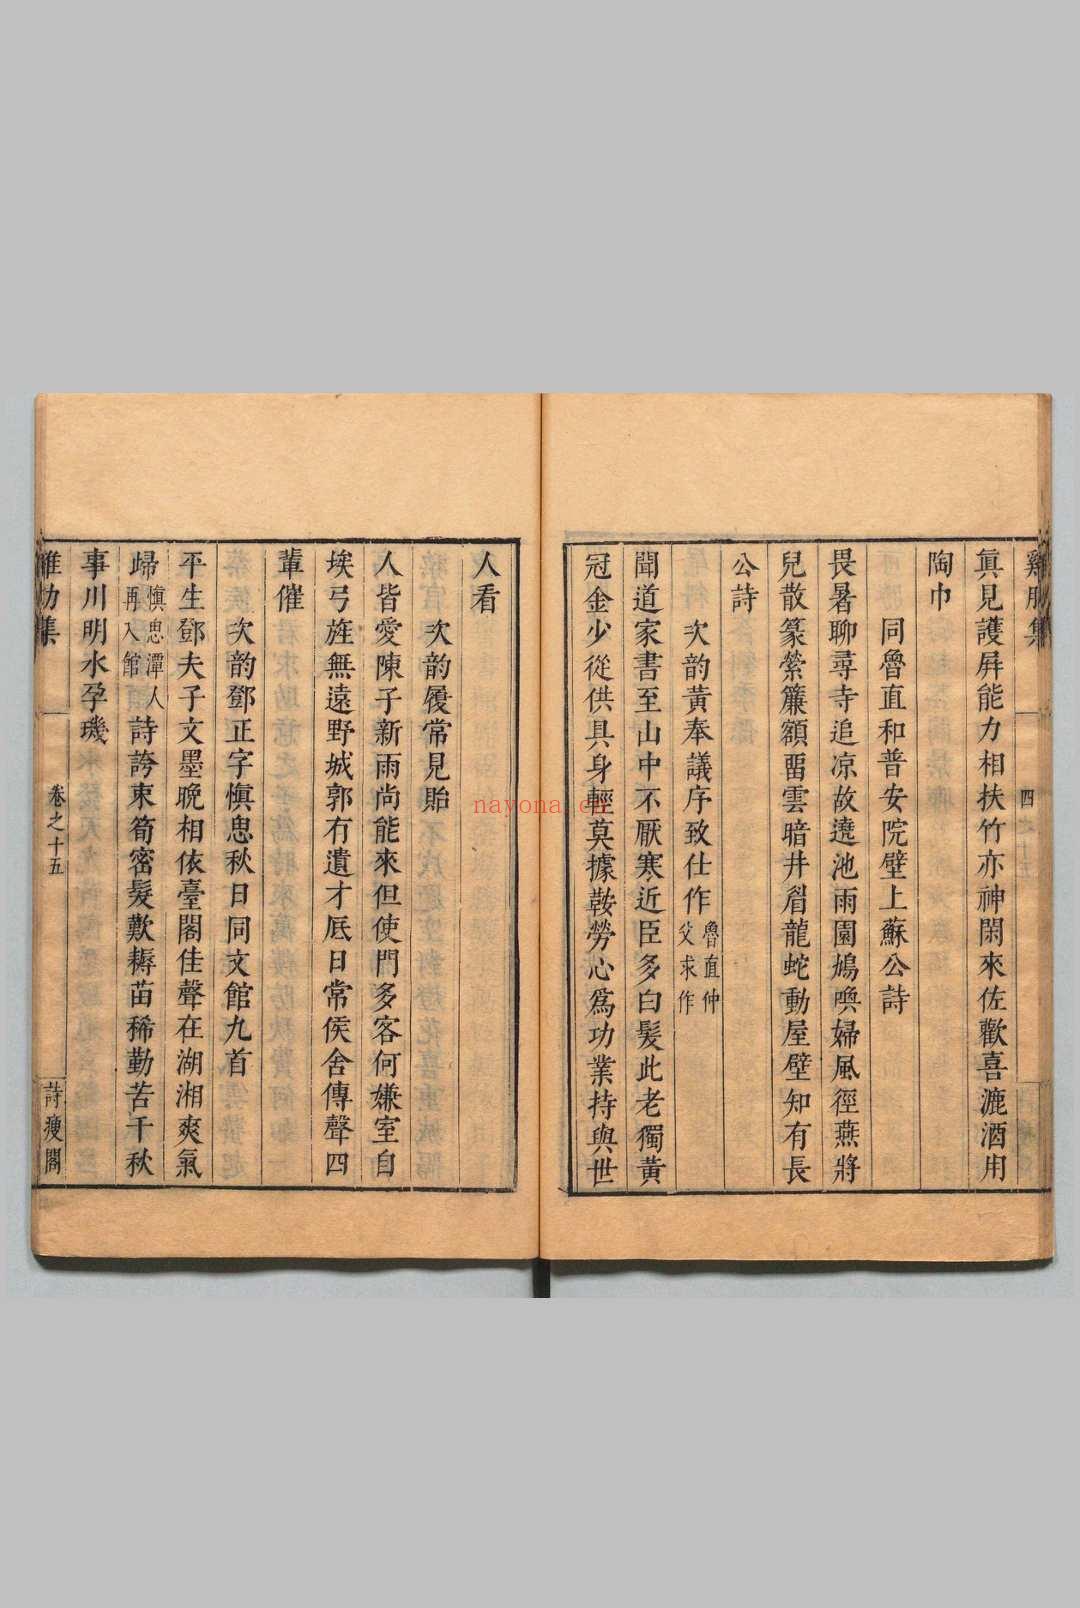 雞肋集
四
眞見護屛能力相扶竹亦神閑來佐歡喜漉酒用
陶巾
同魯直和普安院壁上蘇公詩
畏暑聊尋寺追凉故遶池雨園鳩喚婦風徑燕將
兒散篆縈簾額畱雲暗井眉龍蛇動屋壁知有長
公詩
次韵黃奉議序致仕作魯直仲
父求作
聞道家書至山中不厭寒近臣多白髮此老獨黃
冠金少從供具身輕莫據鞍勞心爲功業持與世
人看
次韵履常見貽
人皆愛陳子新雨尚能來但使門多客何嫌室自
埃弓旌無遠野城郭有遺才厎日常侯舍傳聲四
輩催
次韵鄧正字愼思秋日同文館九首
平生鄧夫子文墨晚相依臺閣佳聲在湖湘爽氣
歸愼思潭人
再入館
詩誇束筍密髮歎耨苗稀勤苦千秋
事川明水孕璣
雞肋集
卷之十五
詩瘦閣
nayona.cn